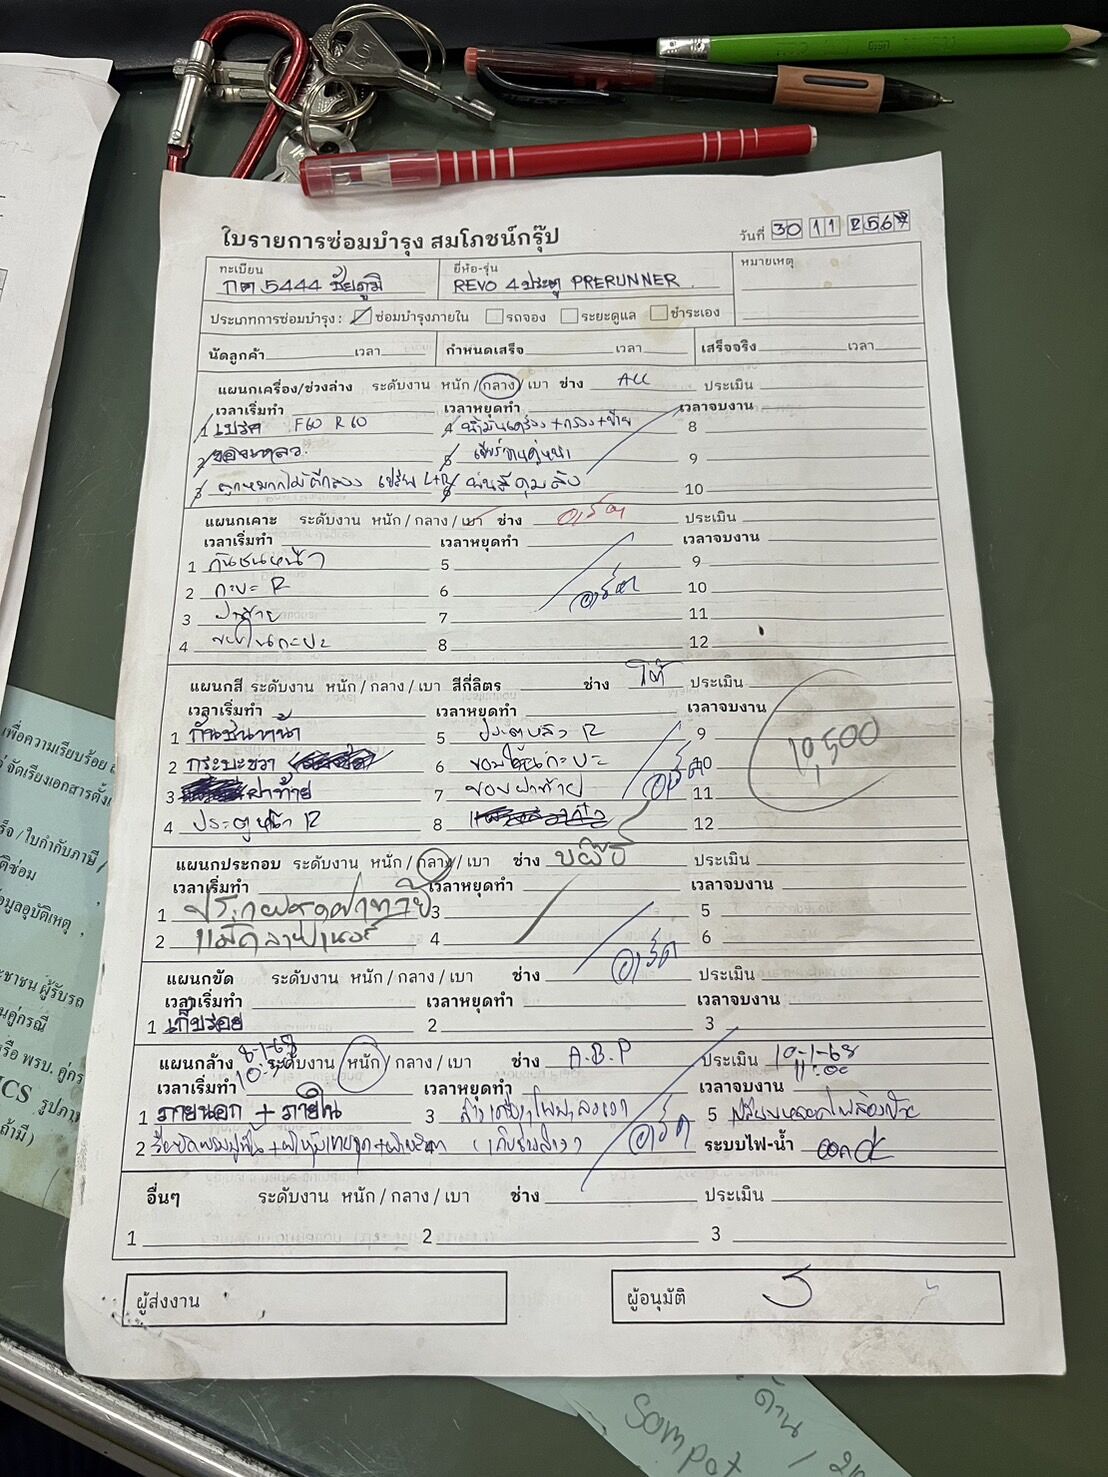 ใบรายการซ่อมบำรุง สมโภชน์กรุ๊ป
วันที่ 30 11 2567
ทะเบียน
กต 5444 ชัยภูมิ
ยี่ห้อ-รุ่น
REVO 4 ประตู PRERUNNER
หมายเหตุ
ประเภทการซ่อมบำรุง : ซ่อมบำรุงภายใน รถจอง ระยะดูแล ชำระเอง
นัดลูกค้า เวลา กำหนดเสร็จ เวลา เสร็จจริง เวลา
แผนกเครื่อง/ช่วงล่าง ระดับงาน หนัก / กลาง / เบา ช่าง ALL ประเมิน
เวลาเริ่มทำ เวลาหยุดทำ เวลาจบงาน
1 เบรค F60 R60 4 น้ำมันเครื่อง + กรอง + ถ่าย 8
2 ของเหลว 5 9
3 6 พ่นสีดุมล้อ 10
แผนกเคาะ ระดับงาน หนัก / กลาง / เบา ช่าง อาร์ต ประเมิน
เวลาเริ่มทำ เวลาหยุดทำ เวลาจบงาน
1 กันชนหน้า 5 9
2 กะบะ R 6 อาร์ต 10
3 ฝาท้าย 7 11
4 ขอบในกะบะ 8 12
แผนกสี ระดับงาน หนัก / กลาง / เบา สีกี่ลิตร ช่าง โต้ ประเมิน
เวลาเริ่มทำ เวลาหยุดทำ เวลาจบงาน
1 กันชนหน้า 5 ประตูหลัง R 9
2 กระบะขวา 6 ขอบในกะบะ อาร์ต 10
3 ฝาท้าย 7 ขอบฝาท้าย 11
4 ประตูหน้า R 8 12
10,500
แผนกประกอบ ระดับงาน หนัก / กลาง / เบา ช่าง ประเมิน
เวลาเริ่มทำ เวลาหยุดทำ เวลาจบงาน
1 ประกอบชุดฝาท้าย 3 5
2 แม็คลายเนอร์ 4 6
แผนกขัด ระดับงาน หนัก / กลาง / เบา ช่าง อาร์ต ประเมิน
เวลาเริ่มทำ เวลาหยุดทำ เวลาจบงาน
1 เก็บรอย 2 3
แผนกล้าง 8-1-68 ระดับงาน หนัก / กลาง / เบา ช่าง A.B.P ประเมิน 10-1-68
เวลาเริ่มทำ เวลาหยุดทำ เวลาจบงาน 11:00
1 ภายนอก + ภายใน 3 5
2 อาร์ต ระบบไฟ-น้ำ
อื่นๆ ระดับงาน หนัก / กลาง / เบา ช่าง ประเมิน
1 2 3
ผู้ส่งงาน
ผู้อนุมัติ
เพื่อความเรียบร้อย
จัดเรียงเอกสารตั้งแ
ร็จ / ใบกำกับภาษี /
ติซ่อม
มูลอุบัติเหตุ
ะชาชน ผู้รับรถ
นคู่กรณี
รือ พรบ. คู่กร
ICS รูปภา
ถ้ามี)
ด้าน /
sompot